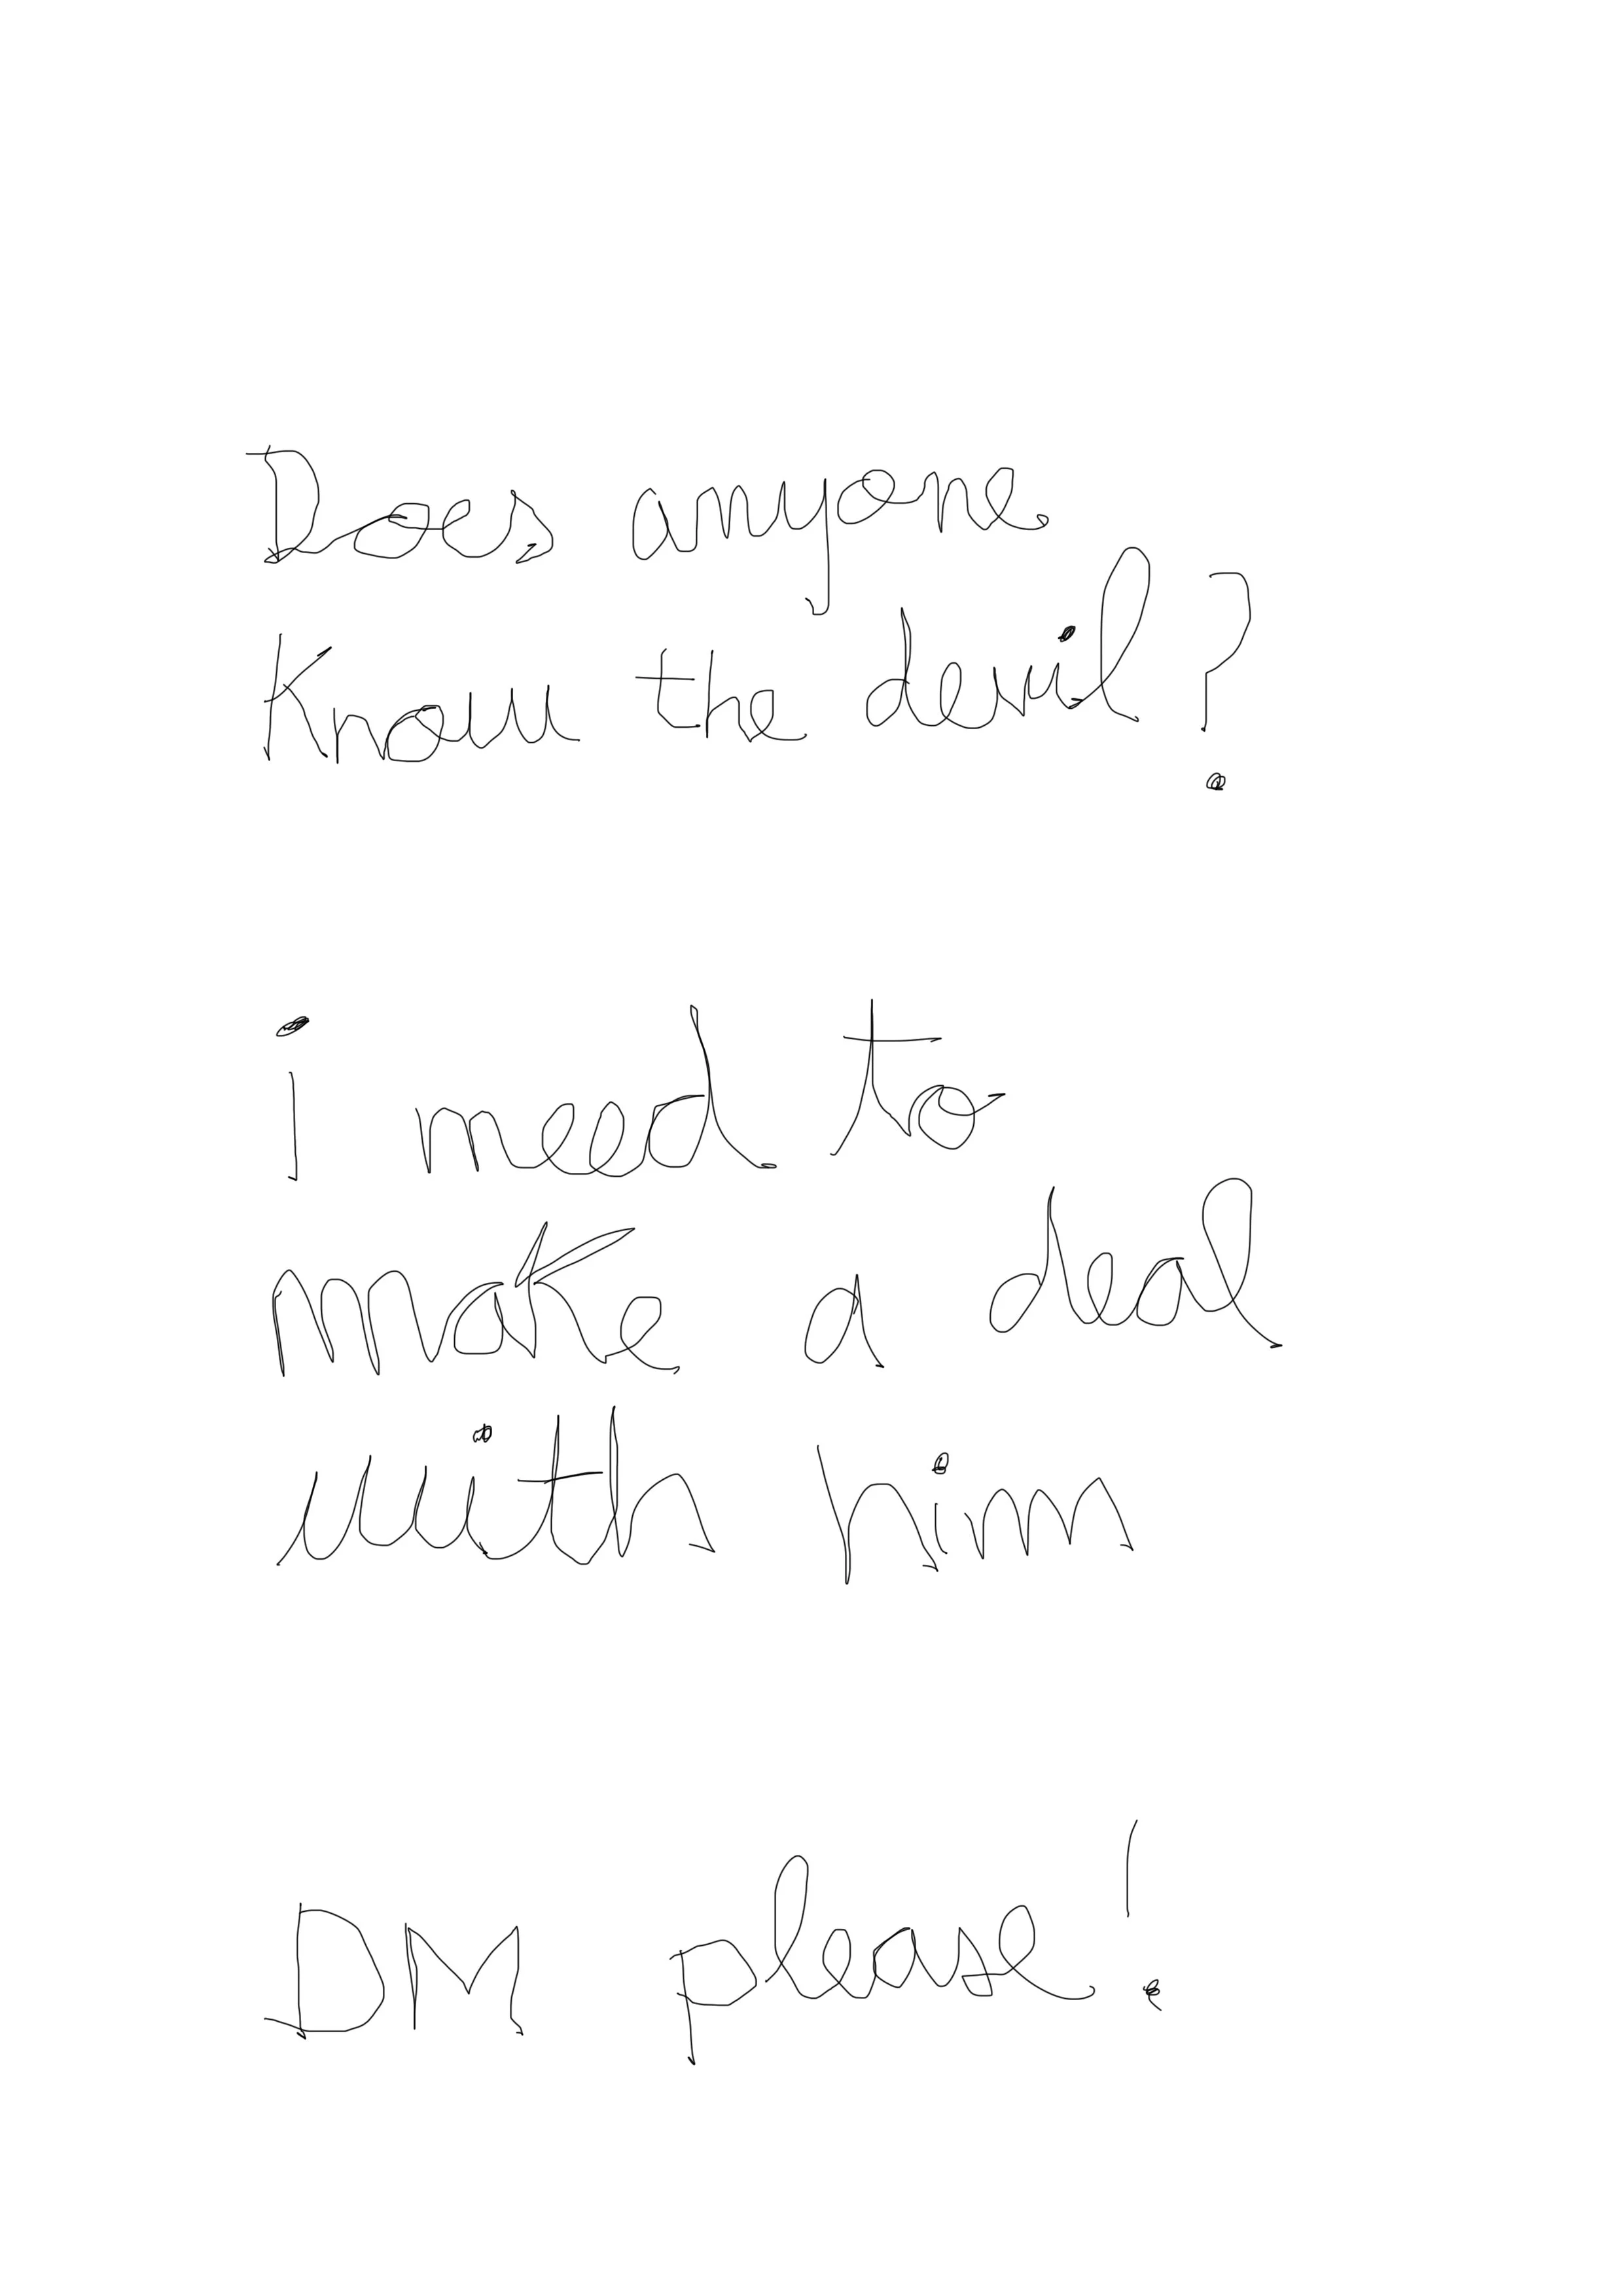 Does anyone
Know the devil?
i need to
make a deal
with him
DM please!